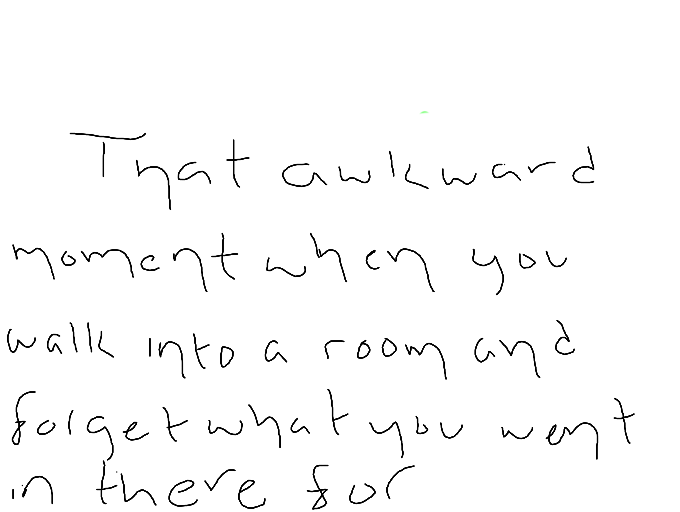 That awkward
moment when you
walk into a room and
forget what you went
in there for